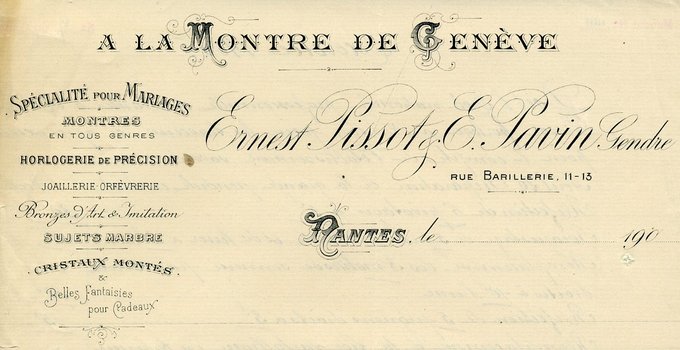 A LA MONTRE DE GENÈVE
SPÉCIALITÉ POUR MARIAGES
MONTRES
EN TOUS GENRES
HORLOGERIE DE PRÉCISION
JOAILLERIE-ORFÈVRERIE
Bronzes d'Art & Imitation
SUJETS MARBRE
CRISTAUX MONTÉS
&
Belles Fantaisies
pour Cadeaux
Ernest Pissot & E. Pavin, Gendre
RUE BARILLERIE, 11-13
NANTES, le 190